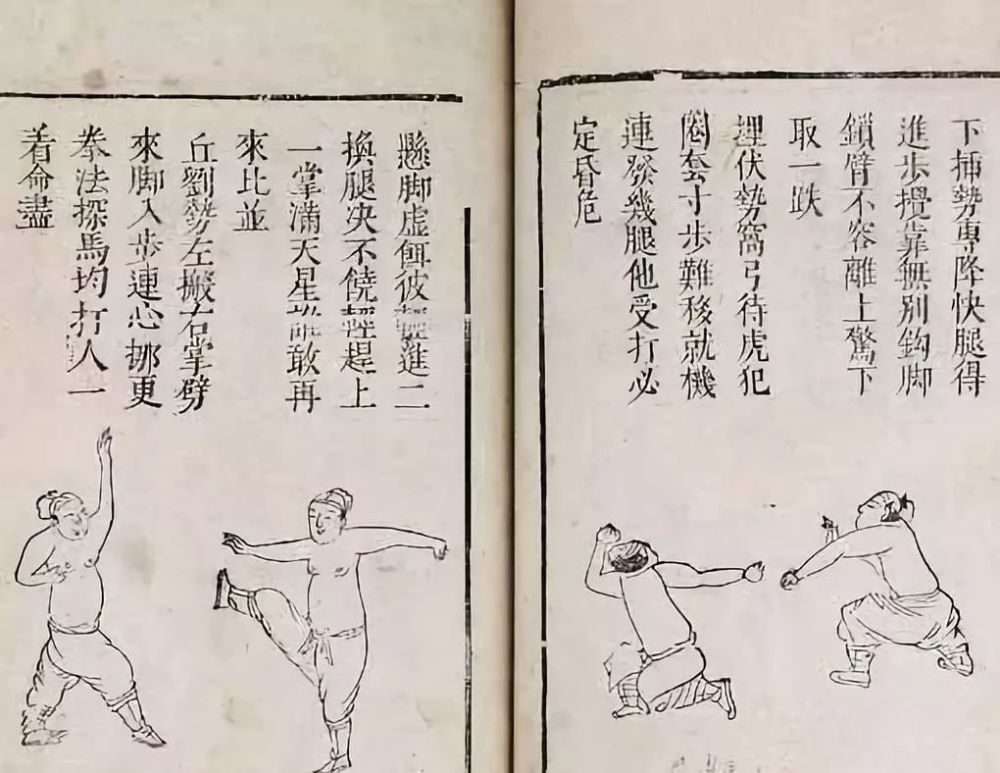 下揷勢專降快腿得
進步攪靠無別鈎脚
鎖臂不容離上驚下
取一跌
埋伏勢窩弓待虎犯
圈套寸步難移就機
連發幾腿他受打必
定昏危
懸脚虛餌彼輕進二
換腿决不饒輕趕上
一掌滿天星誰敢再
來比並
丘劉勢左搬右掌劈
來脚入步連心挪更
拳法探馬均打人一
着命盡